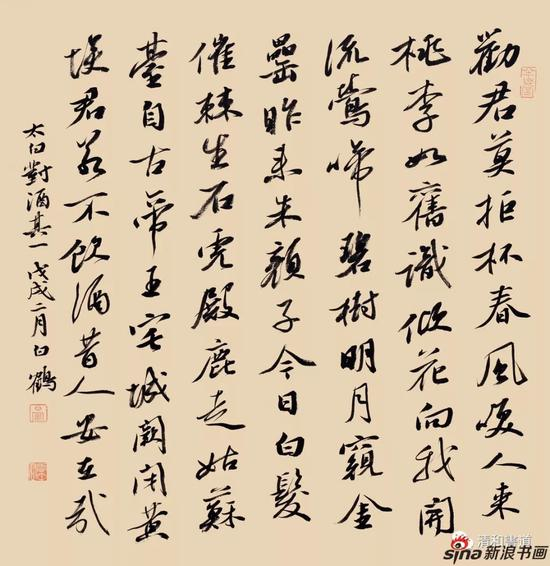 勸君莫拒杯春風咲人來
桃李如舊識傾花向我開
流鶯啼碧樹明月窺金
罍昨來朱顏子今日白髮
催棘生石虎殿鹿走姑蘇
臺自古帝王宅城闕閉黃
埃君若不飲酒昔人安在哉
太白對酒其一 戊戌二月白鶴
清和書道
sina新浪书画